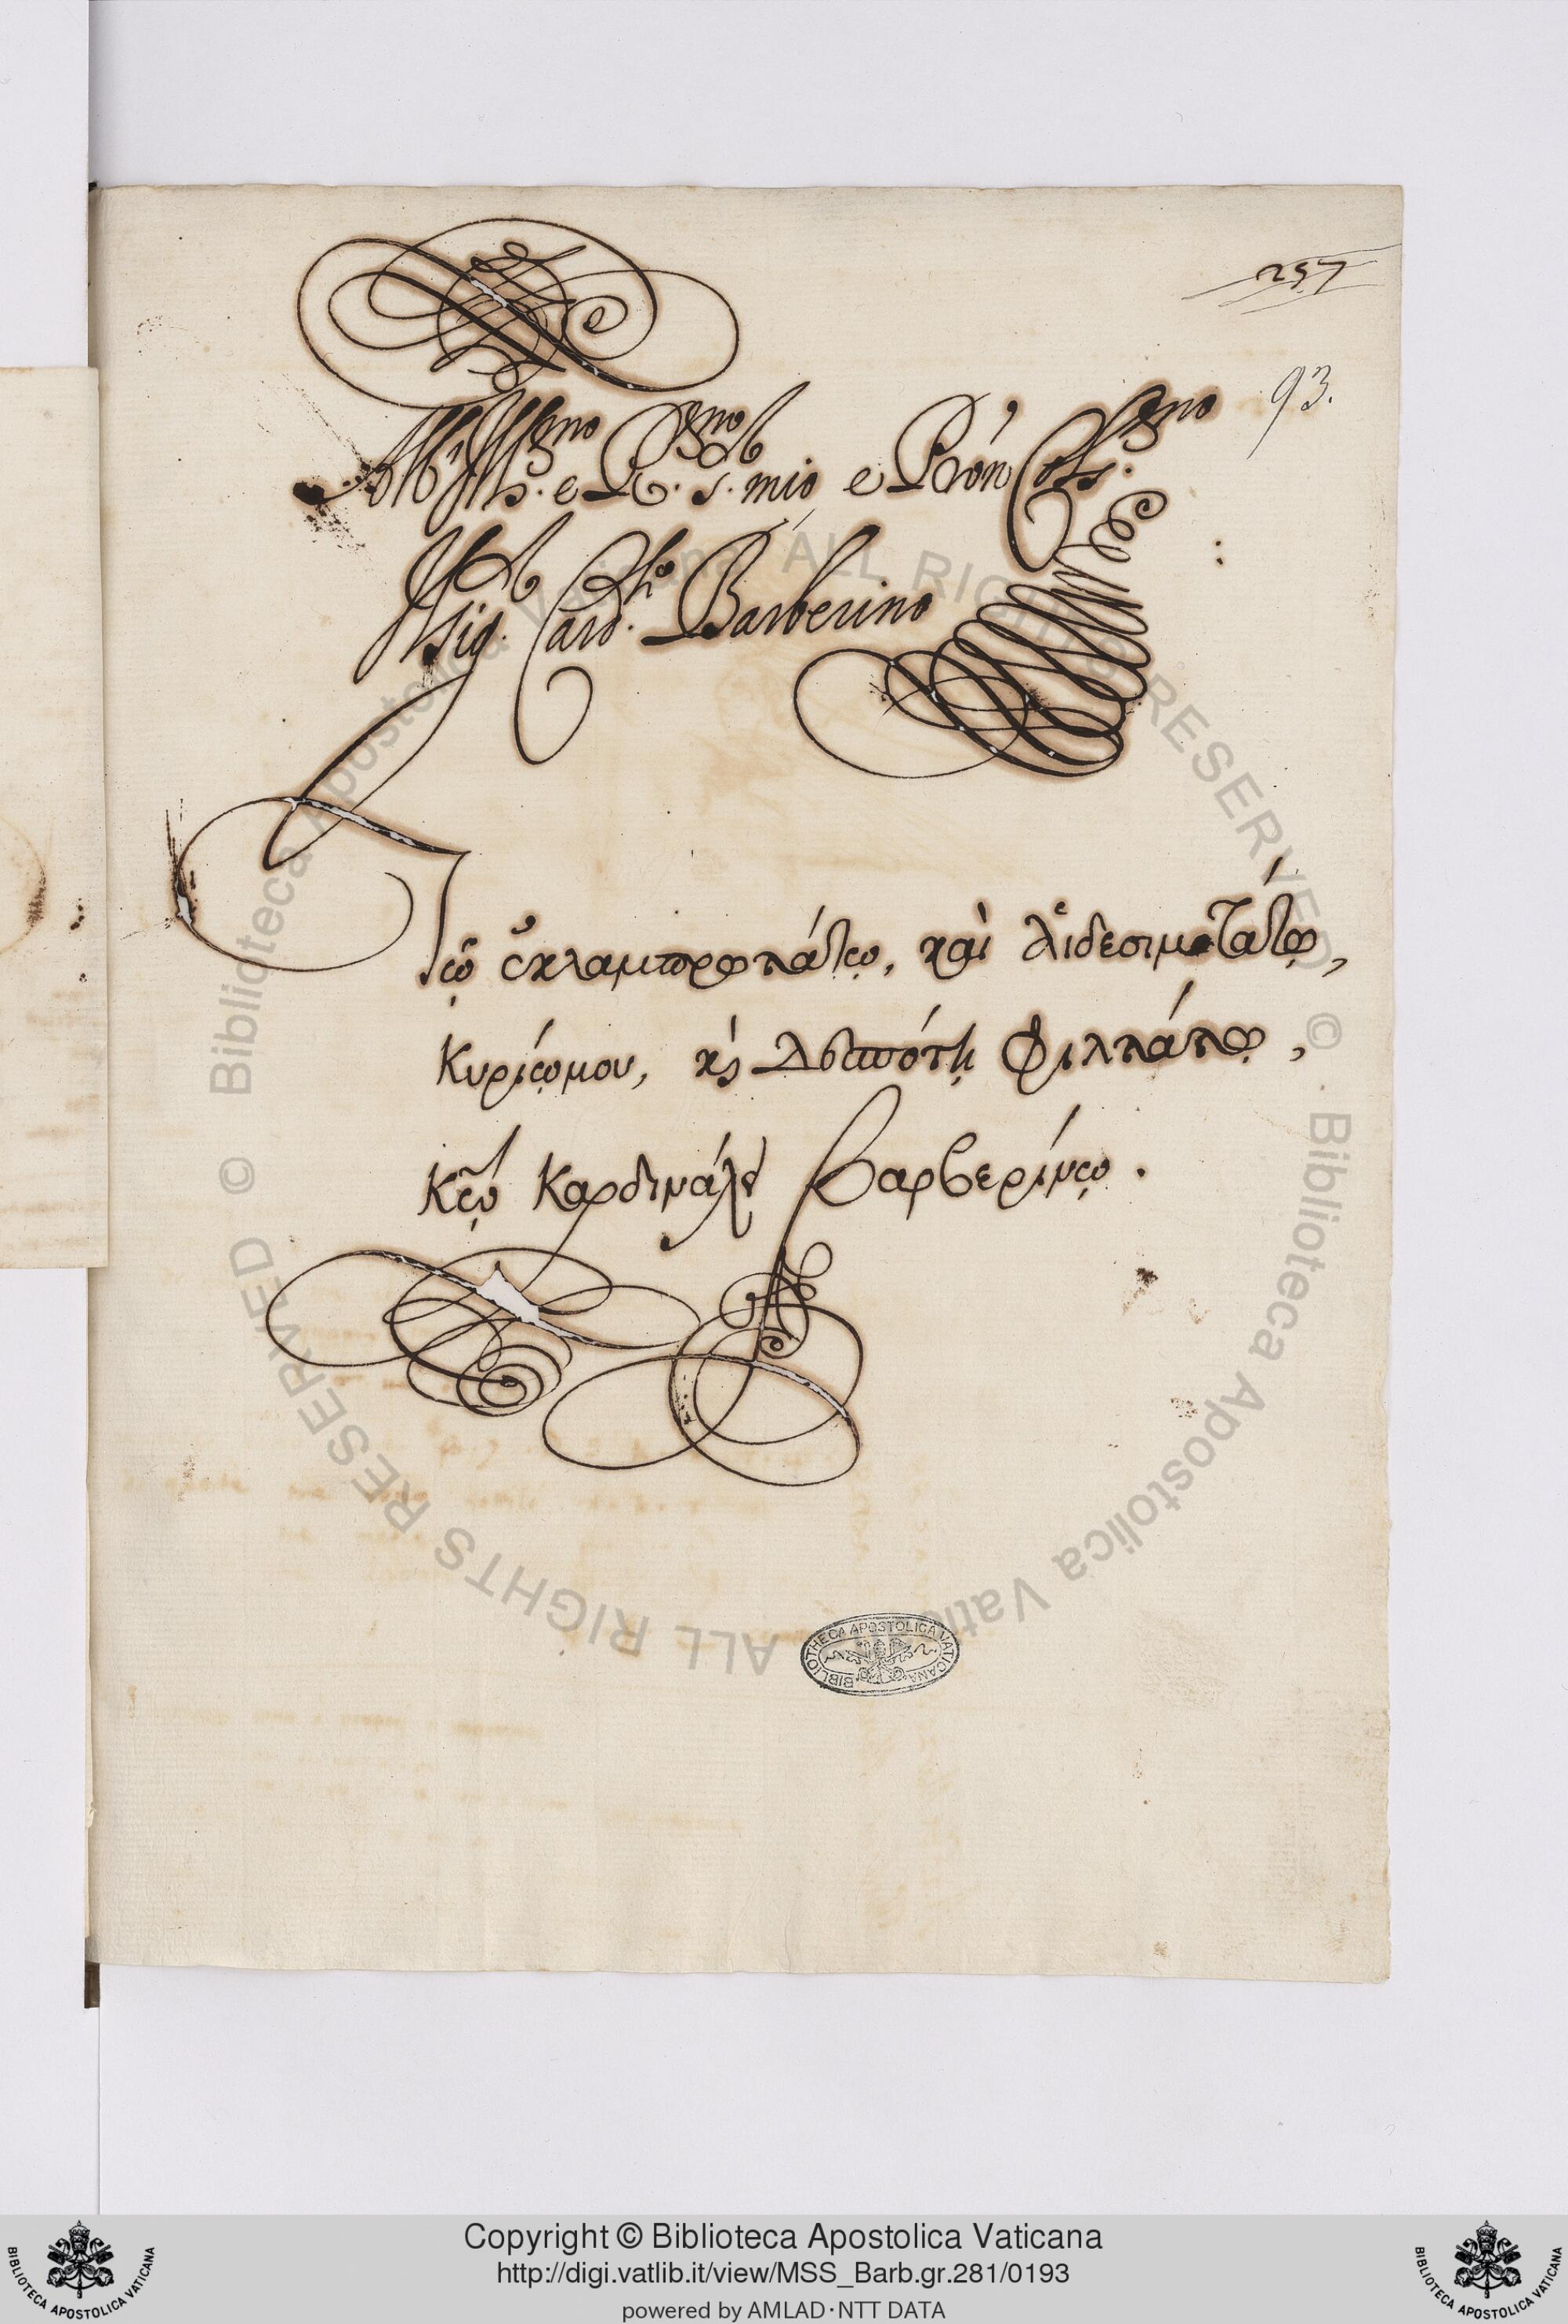 257
93.
All' Ill.mo e R.mo S. mio e Pron Col.mo
Il Sig. Card.le Barberino
Τῷ ἐκλαμπροτάτῳ, καὶ αἰδεσιμοτάτῳ,
Κυρίῳ μου, κὶ Δεσπότῃ Φιλτάτῳ,
Κῷ Καρδινάλι Βαρβερίνῳ.
BIBLIOTHECA APOSTOLICA VATICANA
© Biblioteca Apostolica Vaticana ALL RIGHTS RESERVED © Biblioteca Apostolica Vaticana ALL RIGHTS RESERVED
Copyright © Biblioteca Apostolica Vaticana
http://digi.vatlib.it/view/MSS_Barb.gr.281/0193
powered by AMLAD·NTT DATA
BIBLIOTECA APOSTOLICA VATICANA
BIBLIOTECA APOSTOLICA VATICANA